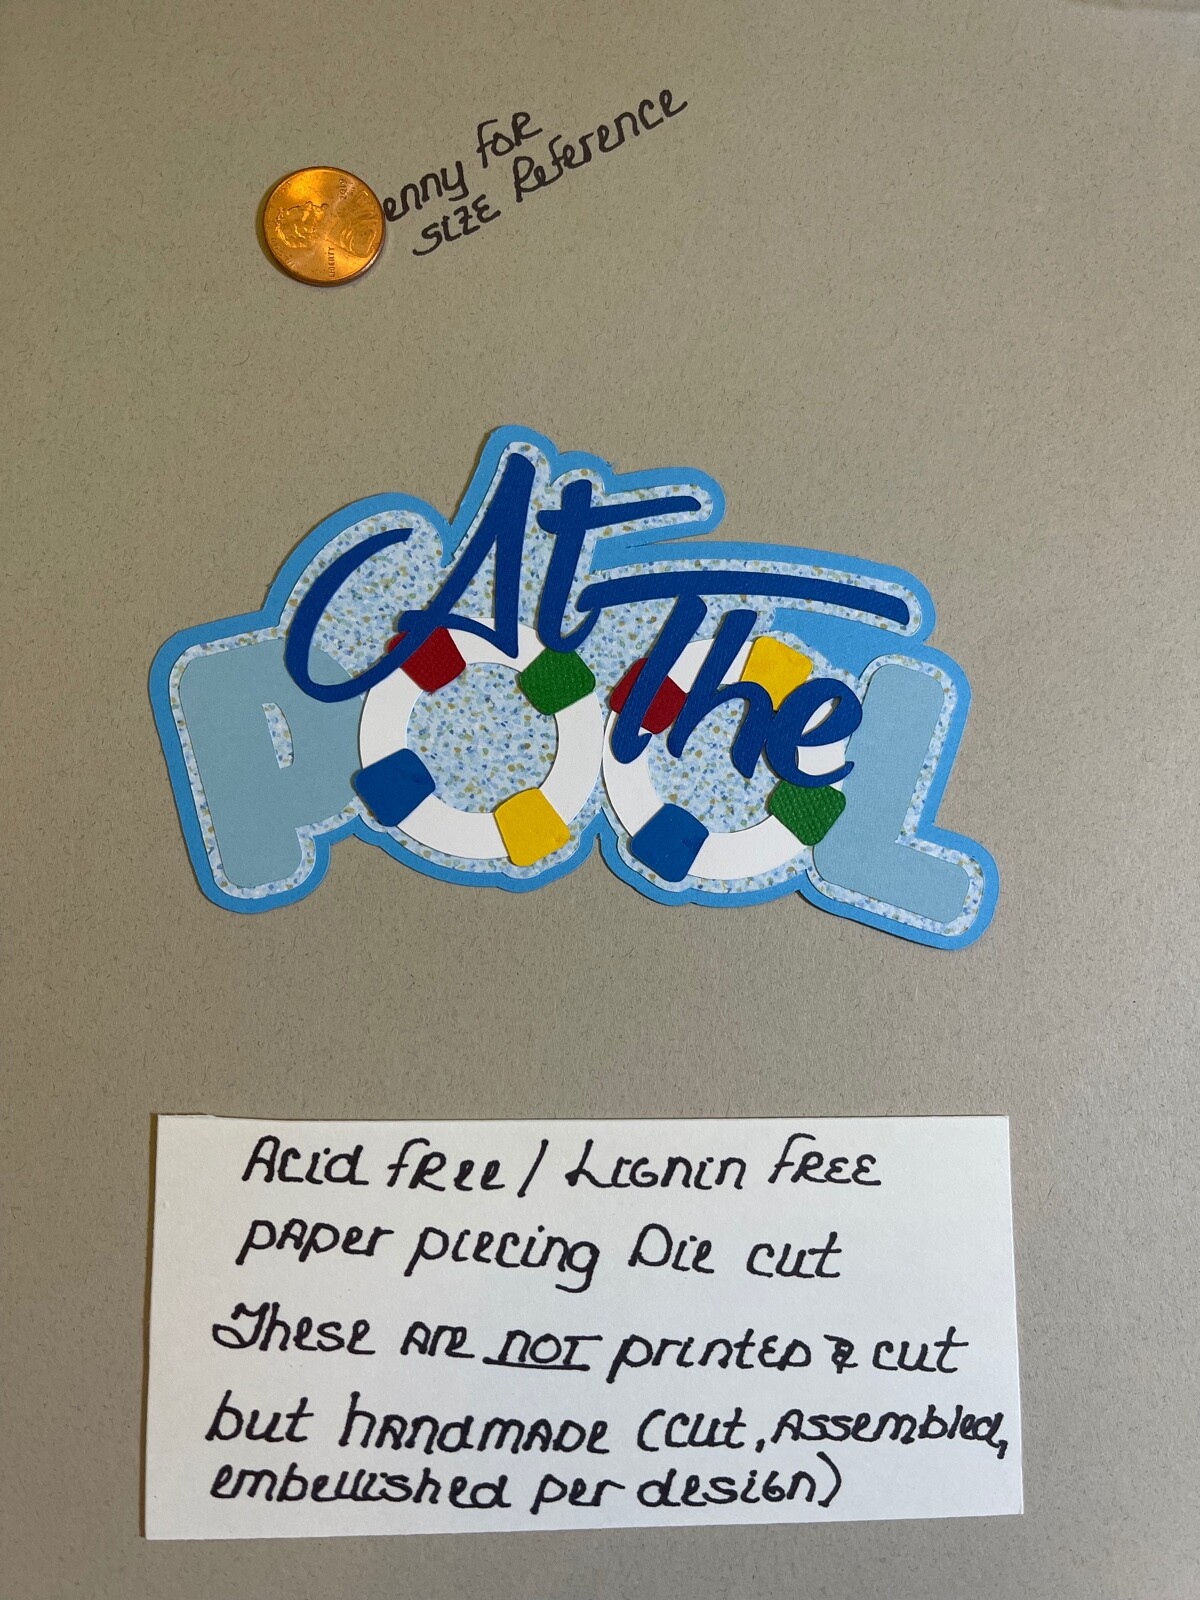 enny for
size Reference
2019
LIBERTY
At
The
POOL
Acid free / Lignin free
paper piecing Die cut
These are NOT printed & cut
but handmade (cut, Assembled,
embellished per design)